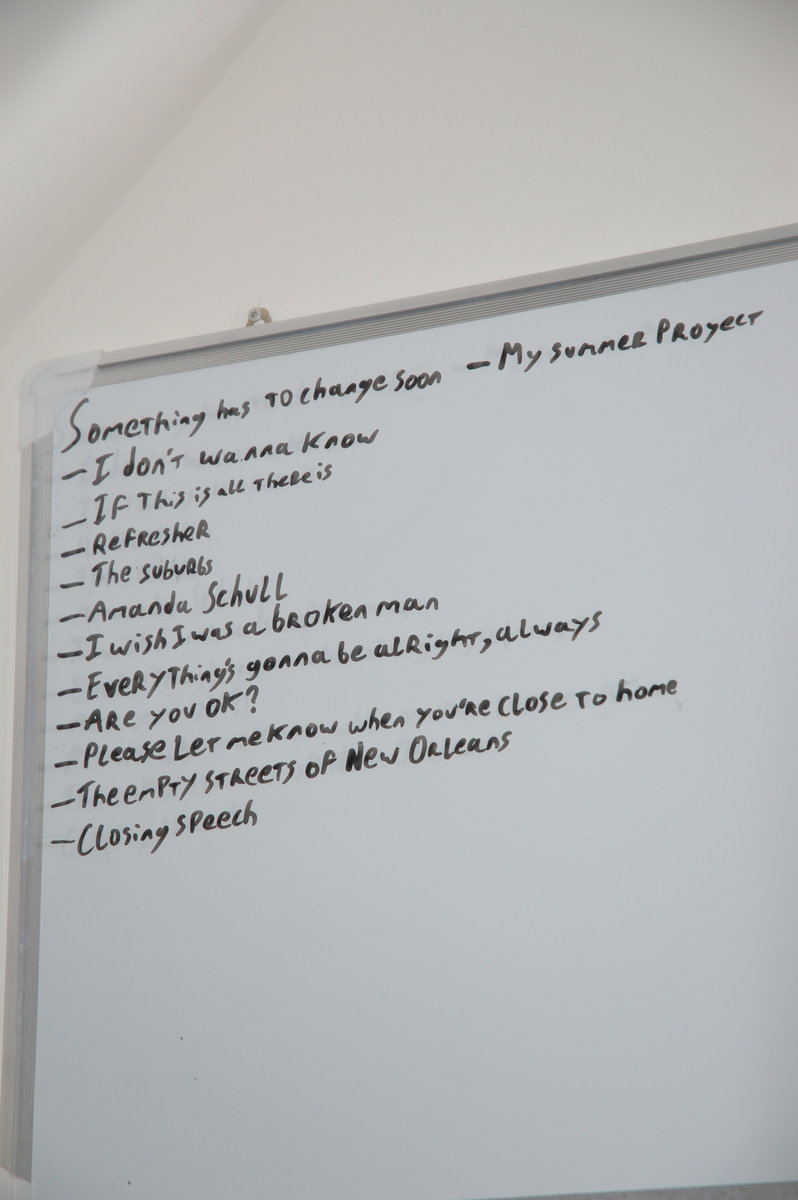 Something has to change soon - My summer Proyect
- I don't wanna know
- If this is all there is
- Refresher
- The suburbs
- Amanda Schull
- I wish I was a broken man
- Everything's gonna be alright, always
- Are you OK?
- Please let me know when you're close to home
- The empty streets of New Orleans
- Closing speech